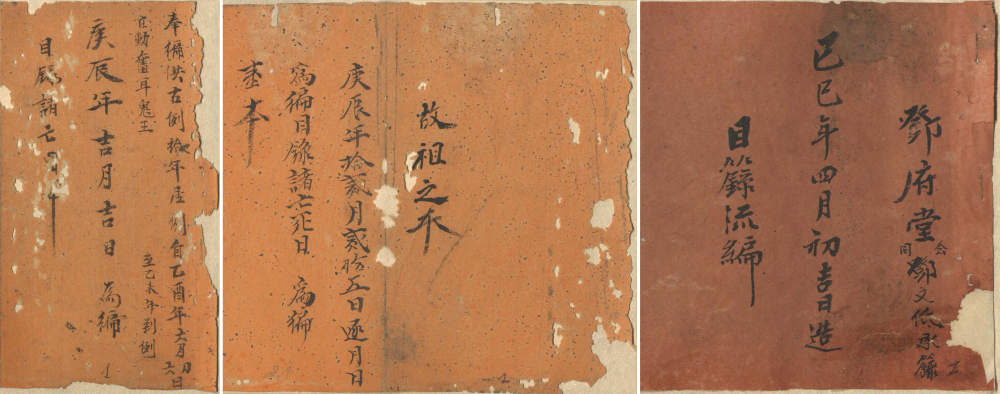 奉編供古例拾年居例自乙酉年六月初六日
至乙未年到例
宜勳奮耳鬼王
庚辰年吉月吉日 為編
目錄諸亡
故祖之本
庚辰年拾貳月貳拾五日逐月日
寫編目錄諸亡死日 為編
壹本
鄧府堂
會同鄧文 承錄
己巳年四月初吉日造
目籙流編